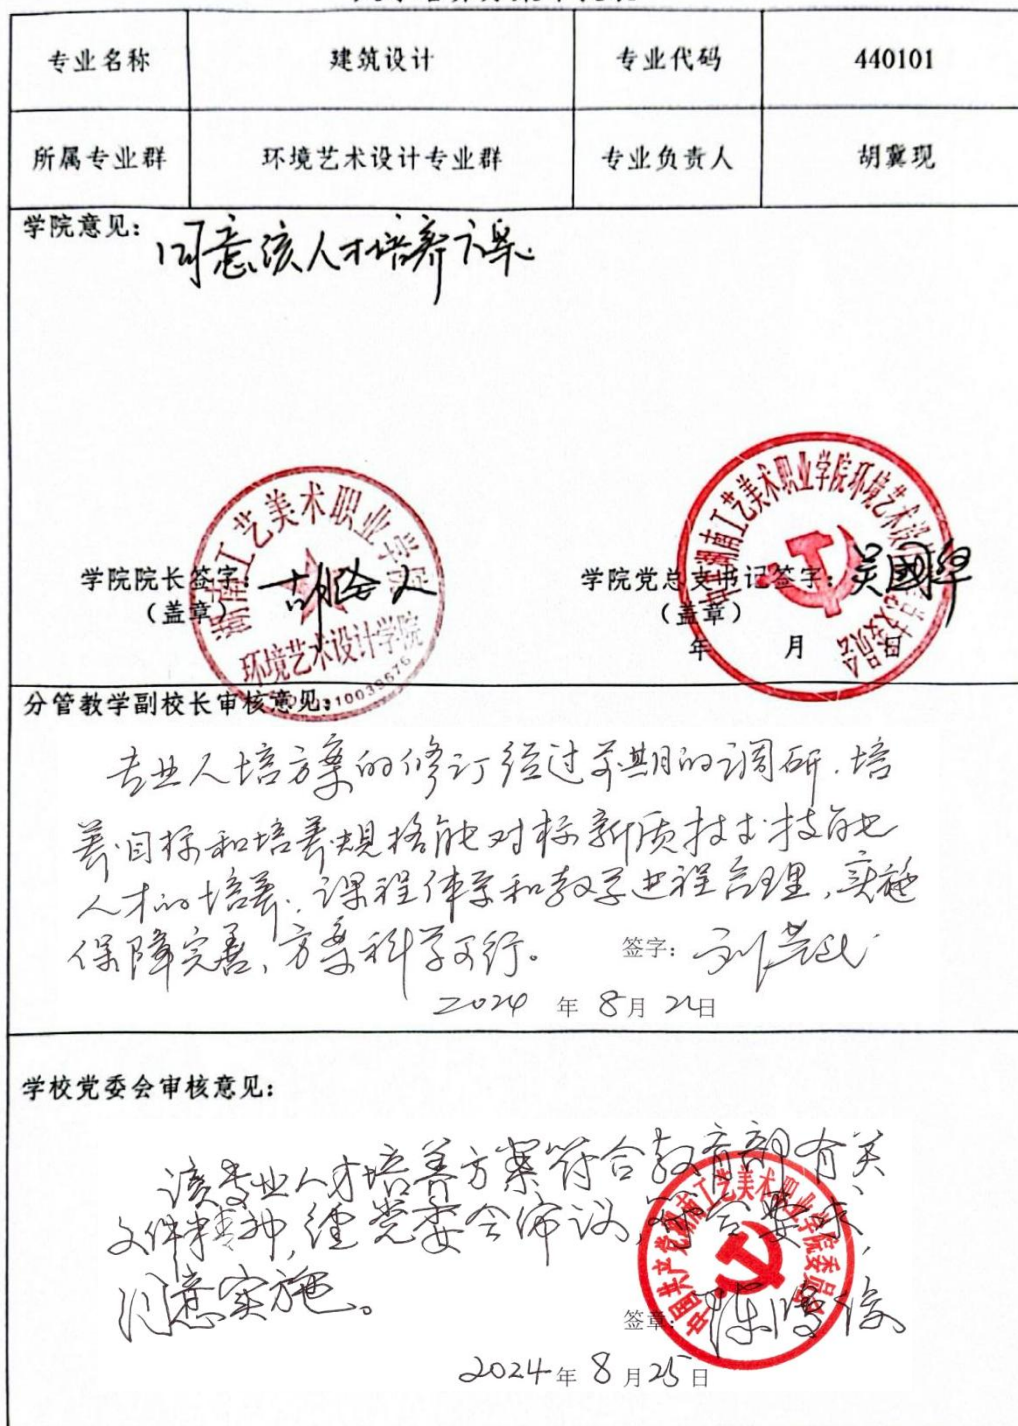 专业名称 建筑设计 专业代码 440101
所属专业群 环境艺术设计专业群 专业负责人 胡冀现
学院意见：
同意该人才培养方案.
湖南工艺美术职业学院
环境艺术设计学院
学院院长签字：
（盖章）
学院党总支书记签字：吴國华
（盖章）
年 月 日
分管教学副校长审核意见：
专业人培方案的修订经过前期的调研，培
养目标和培养规格能对标新质技术技能
人才的培养，课程体系和教学进程合理，实施
保障完善，方案科学可行。 签字：
2024 年 8月 日
学校党委会审核意见：
该专业人才培养方案符合教育部有关
文件精神，经党委会审议，符合要求，
同意实施。
中国共产党湖南工艺美术职业学院委员会
签章：
2024年 8月25日